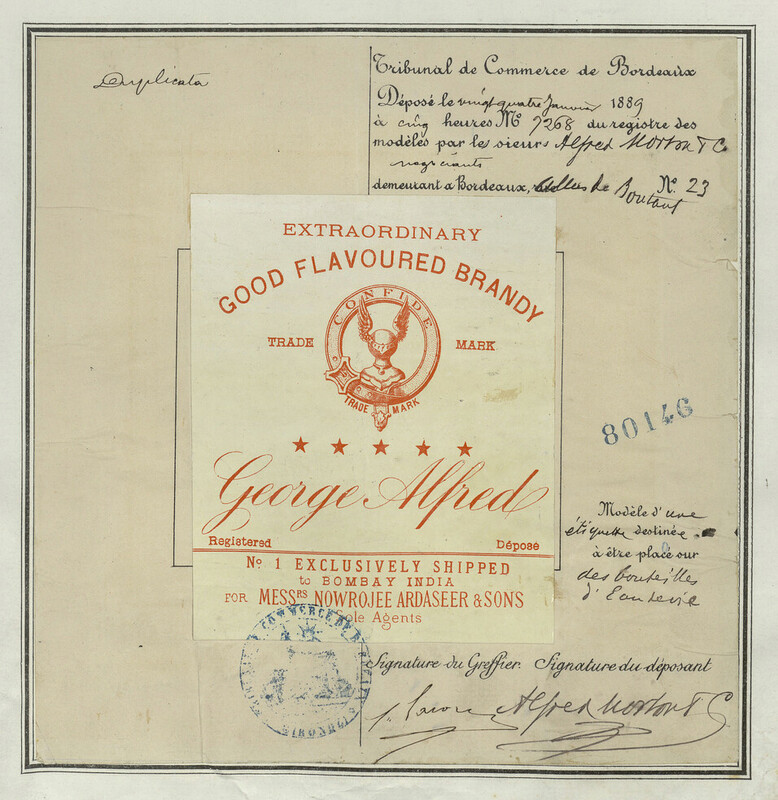 Duplicata
Tribunal de Commerce de Bordeaux
Déposé le vingt quatre Janvier 1889
à cinq heures No 7268 du registre des
modèles par les sieurs Alfred Morton & C
negociants
demeurant a Bordeaux, de No. 23
Boutaut
EXTRAORDINARY
GOOD FLAVOURED BRANDY
CONFIDE
TRADE MARK
TRADE MARK
George Alfred
Registered Déposé
No 1 EXCLUSIVELY SHIPPED
to BOMBAY INDIA
FOR MESSRS NOWROJEE ARDASEER & SONS
Sole Agents
80146
Modèle d'une
étiquette destinée
à être placé sur
des bouteilles
d'Eaudevie
COMMERCE DE
GIRONDE
Signature du Greffier. Signature du déposant
Alfred Morton & C